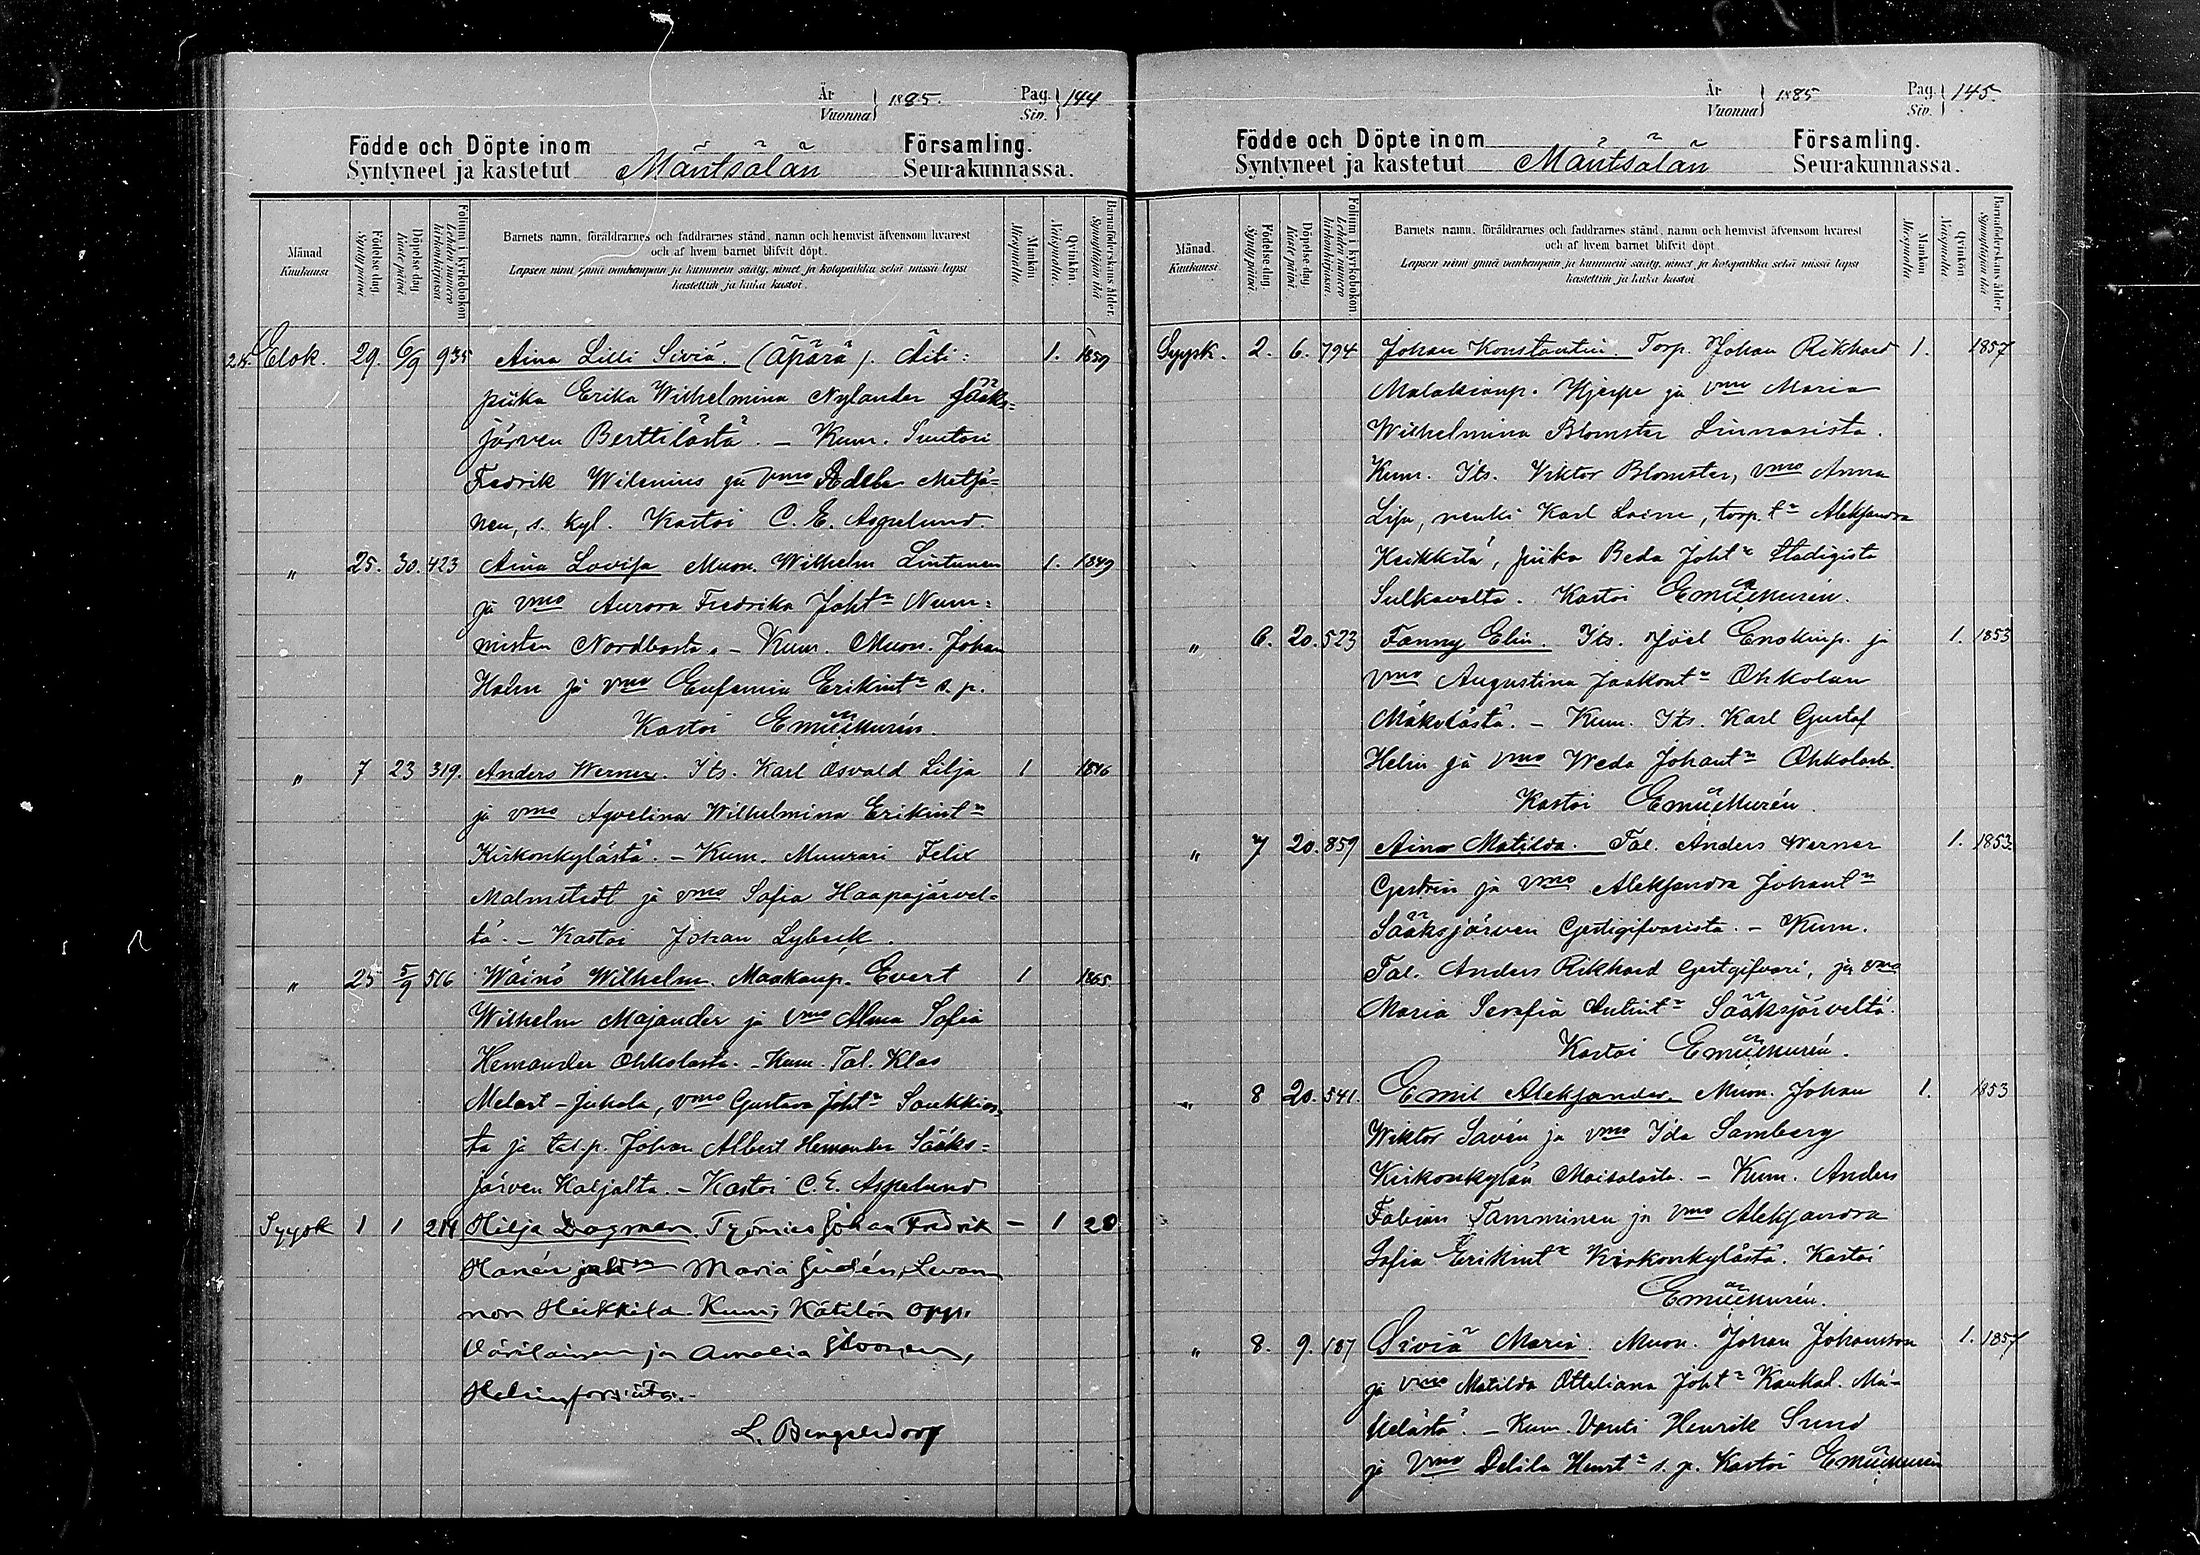 År
Vuonna } 1885.
Pag.
Siv. } 144
Födde och Döpte inom Församling.
Syntyneet ja kastetut Mäntsälän Seurakunnassa.
Månad
Kuukausi
Födelse-dag.
Syntymäpäivä
Döpelse-dag
Kaste päivä
Folium i kyrkobokon
Lehden numero kirkonkirjassa
Barnets namn, föräldrarnes och faddrarnes stånd, namn och hemvist äfvensom hvarest
och af hvem barnet blifvit döpt.
Lapsen nimi ynnä vanhempain ja kummein sääty, nimet ja kotopaikka sekä missä lapsi
kastettiin ja kuka kastoi.
Mankön
Miespuolta.
Qvinkön.
Naispuolta.
Barnaföderskans ålder.
Synnyttäjän ikä
Elok. 29. 6/9 935 Aina Lilli Siviä. (Äpärä). Äiti: 1. 1859
piika Erika Wilhelmina Nylander Sääks-
järven Berttilästä. – Kum. Suutari
Fredrik Wilenius ja vmo Adele Metsä-
nen, s. kyl. Kastoi C. E. Aspelund.
" 25. 30. 423 Aina Lovisa Muon. Wilhelm Lintunen 1. 1849
ja vmo Aurora Fredrika Joht:r Num-
misten Nordbosta. – Kum. Muon. Johan
Holm ja vmo Eufemia Erikint:r s. p.
Kastoi Em: Murén.
" 7 23 319. Anders Werner. Its. Karl Osvald Lilja 1 1846
ja vmo Aqvelina Wilhelmina Erikint:r
Kirkonkylästä. – Kum. Muurari Felix
Malmstedt ja vmo Sofia Haapajärvel-
tä. – Kastoi Johan Lybeck.
" 25 5/9 516 Wäinö Wilhelm. Maakaup. Evert 1 1865
Wilhelm Majander ja vmo Alma Sofia
Hemander Ohkolasta. – Kum. Tal. Klas
Melart – Juhola, vmo Gustava Joht:r
ta ja tal.p. Johan Albert Hemander Sääks-
järven Kaljalta. – Kastoi C. E. Aspelund
Syysk 1 1 214 Hilja Dagmar. Työmies Johan Fredrik – 1 28
Hanén Maria
Heikkilä. Kum: Kätilön opp.
Väriläinen ja Amalia
L. Bengelsdorf
År
Vuonna } 1885
Pag.
Siv. } 145.
Födde och Döpte inom Församling.
Syntyneet ja kastetut Mäntsälän Seurakunnassa.
Månad.
Kuukausi.
Födelse-dag.
Syntymäpäivä
Döpelse-dag
Kaste päivä
Folium i kyrkobokon
Lehden numero kirkonkirjassa.
Barnets namn, föräldrarnes och faddrarnes stånd, namn och hemvist äfvensom hvarest
och af hvem barnet blifvit döpt.
Lapsen nimi ynnä vanhempain ja kummein sääty, nimet ja kotopaikka sekä missä lapsi
kastettiin ja kuka kastoi.
Mankön
Miespuolta.
Qvinkön
Naispuolta
Barnaföderskans ålder
Synnyttäjän ikä
Syysk. 2. 6. 794 Johan Konstantin. Torp. Johan Rikhard 1. 1857
Malakianp. Hjerpe ja vmo Maria
Wilhelmina Blomster Linnaisista.
Kum. Its. Viktor Blomster, vmo Anna
Lisa, renki Karl Laine, torp. t:r Aleksandra
Heikkilä, piika Beda Joht:r
Sulkavalta. Kastoi Em: Murén.
" 6. 20. 523 Fanny Elin. Its. Joel Enokinp. ja 1. 1853
vmo Augustina Jaakont:r Ohkolan
Mäkelästä. – Kum. Its. Karl Gustaf
Helin ja vmo Weda Johant:r Ohkolasta.
Kastoi Em: Murén.
" 7 20. 859 Aina Matilda. Tal. Anders Werner 1. 1853
Gestrin ja vmo Aleksandra Johant:r
Sääksjärven Gestigifvarista. – Kum.
Tal. Anders Rikhard Gestgifvari, ja vmo
Maria Serafia Antint:r Sääksjärveltä.
Kastoi Em: Murén.
" 8 20. 541. Emil Aleksander. Muon. Johan 1. 1853
Wiktor Savén ja vmo Ida Samberg
Kirkonkylän Maisalasta. – Kum. Anders
Fabian Tamminen ja vmo Aleksandra
Sofia Erikint:r Kirkonkylästä. Kastoi
Em: Murén.
" 8. 9. 187 Siviä Maria. Muon. Johan Johansson 1. 1857
ja vmo Matilda Otteliana Joht:r Kaukal. Mä-
kelästä. – Kum. Vouti Henrik Sund
ja vmo Delila Henr:t s. p. Kastoi Em: Murén